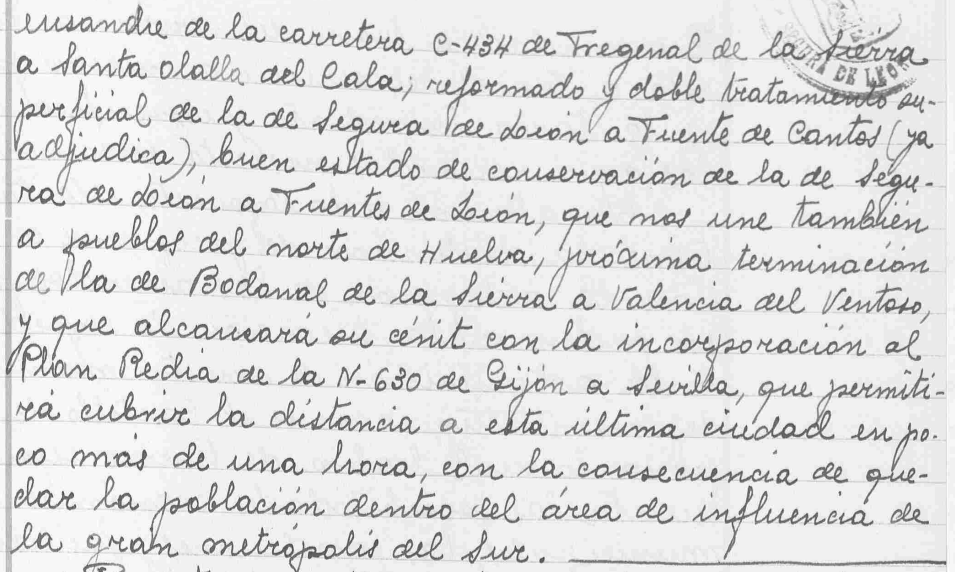 ensanche de la carretera C-434 de Fregenal de la Sierra
a Santa Olalla del Cala; reformado y doble tratamiento su-
perficial de la de Segura de León a Fuente de Cantos (ya
adjudica), buen estado de conservación de la de Segu-
ra de León a Fuentes de León, que nos une también
a pueblos del norte de Huelva, próxima terminación
de la de Bodonal de la Sierra a Valencia del Ventoso,
y que alcanzará su cénit con la incorporación al
Plan Redia de la N-630 de Gijón a Sevilla, que permiti-
rá cubrir la distancia a esta última ciudad en po-
co más de una hora, con la consecuencia de que-
dar la población dentro del área de influencia de
la gran metrópolis del Sur.